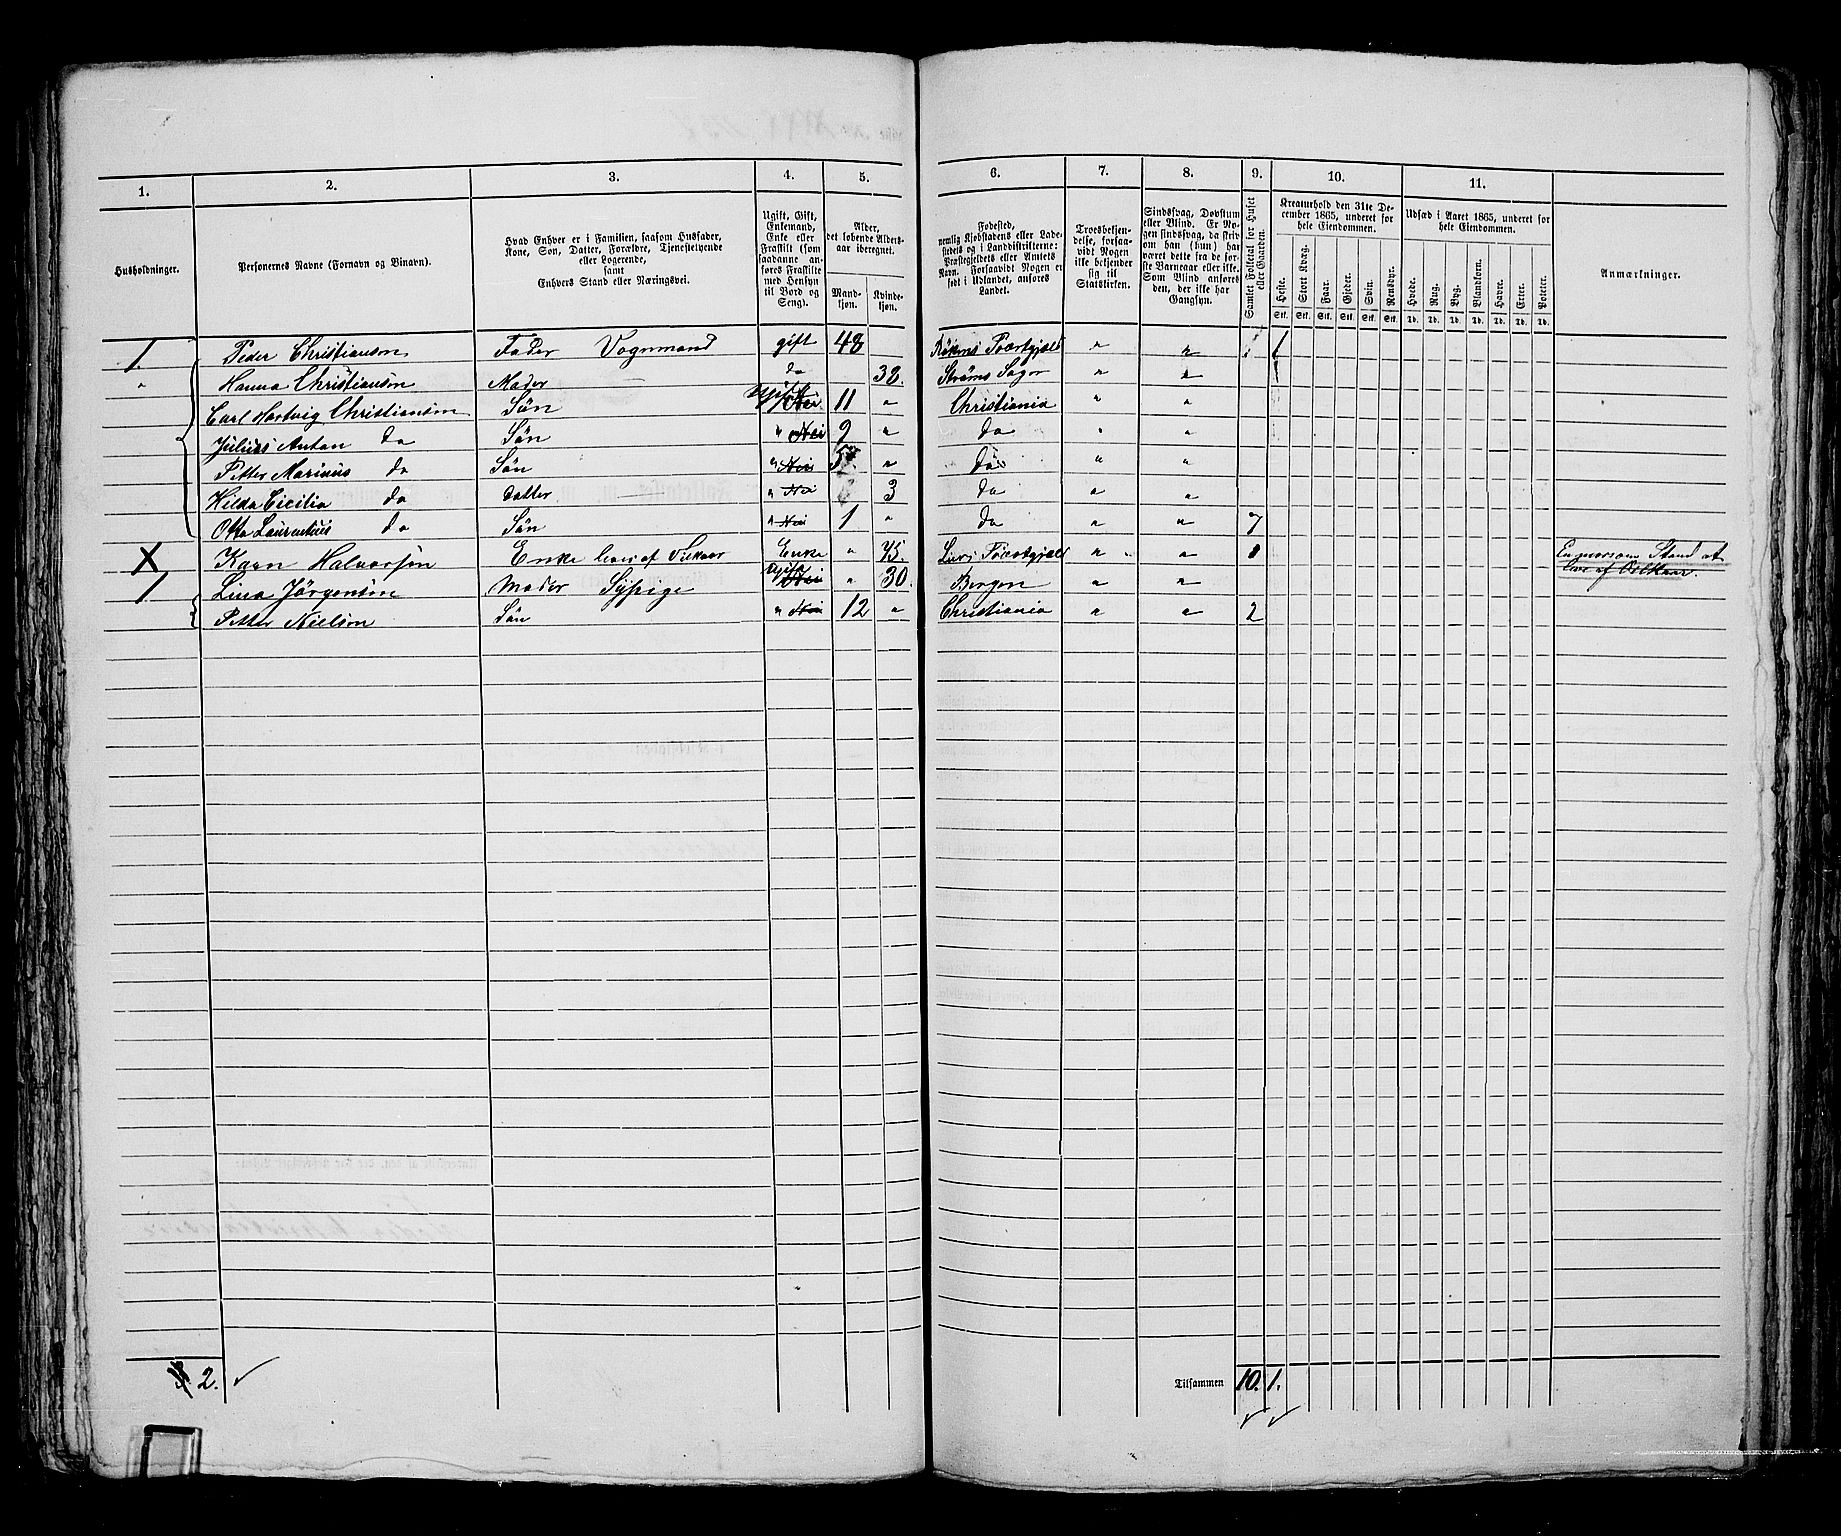 1. 2. 3. 4. 5. 6. 7. 8. 9. 10. 11.
Husholdninger.
Personernes Navne (Fornavn og Binavn).
Hvad Enhver er i Familien, saasom Husfader,
Kone, Søn, Datter, Forældre, Tjenestetyende
eller Logerende,
samt
Enhvers Stand eller Næringsvei.
Ugift, Gift,
Enkemand,
Enke eller
Fraskilt (som
saadanne an-
føres Fraskilte
med Hensyn
til Bord og
Seng).
Alder,
det løbende Alders-
aar iberegnet.
Mand-
kjøn.
Kvinde-
kjøn.
Fødested,
nemlig Kjøbstadens eller Lade-
stedets og i Landdistrikterne:
Præstegjeldets eller Amtets
Navn. Forsaavidt Nogen er
født i Udlandet, anføres
Landet.
Troesbekjen-
delse, forsaa-
vidt Nogen
ikke bekjender
sig til
Statskirken.
Sindssvag, Døvstum
eller Blind. Er No-
gen sindssvag, da skriv
om han (hun) har
været dette fra de før-
ste Barneaar eller ikke.
Som Blind anføres
den, der ikke har
Gangsyn.
Samlet Folketal for Huset
eller Gaarden.
Kreaturhold den 31te De-
cember 1865, underet for
hele Eiendommen.
Heste. Stort Kvæg. Faar. Gjeder. Svin. Rensdyr.
Stk. Stk. Stk. Stk. Stk. Stk.
Udsæd i Aaret 1865, underet for
hele Eiendommen.
Hvede. Rug. Byg. Blandkorn. Havre. Erter. Poteter.
Td. Td. Td. Td. Td. Td. Td.
Anmærkninger.
1 Peder Christiansen Fader Vognmand gift 48 Røkens Præstgjæld " " 1
" Hanna Christiansen Moder do 38. Strøms Sogn " "
Carl Hartvig Christiansen Søn Ugift Nei 11 " Christiania " "
Julius Anton do Søn " Nei 9 " do " "
Petter Marinus do Søn " Nei 5 " do " "
Hilda Cicilia do datter " Nei 3 do " "
Otto Laurentius do Søn " Nei 1 " do " " 7
X Karn Halvorsen Enke leves af Enke " 45. Præstgjæld " " 1 Stand at
leve af
1 Lina Jørgensen Moder Sypige Ugift Nei " 30. Bergen " "
Petter Nielsen Søn " Nei 12 " Christiania " " 2
2. Tilsammen 10. 1.